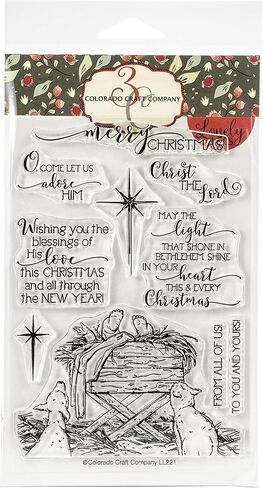 3C
COLORADO CRAFT COMPANY
Lovely
merry
CHRISTMAS!
O, COME LET US
adore
HIM
Christ
THE
Lord
Wishing you the
blessings of
His
love
this CHRISTMAS
and all through
the NEW YEAR!
MAY THE
light
THAT SHONE IN
BETHLEHEM SHINE
IN YOUR
heart
THIS & EVERY
Christmas
FROM ALL OF US!
TO YOU AND YOURS!
©Colorado Craft Company LL221